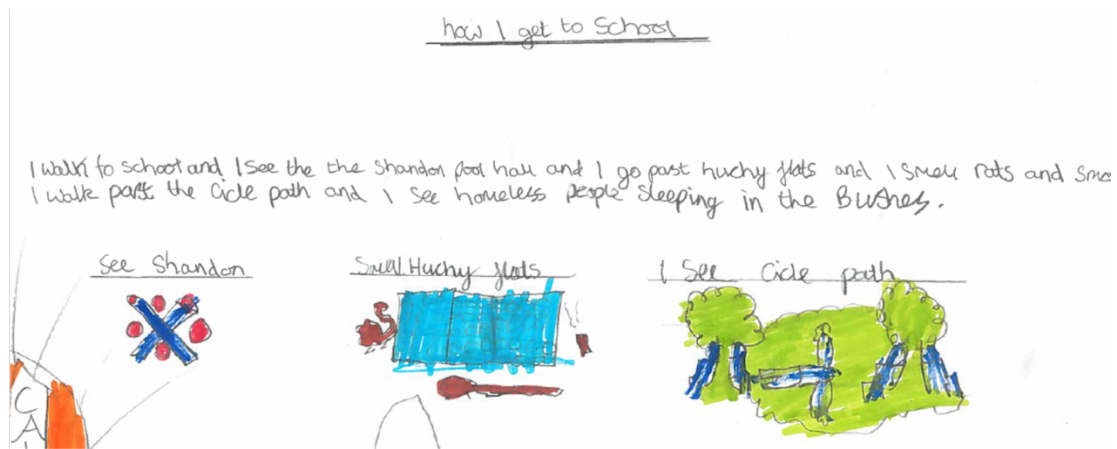 how I get to School
I walk to school and I see the the Shandon pool hall and I go past huchy flats and I smell rats and
I walk past the cicle path and I see homeless people sleeping in the Bushes.
See Shandon
Smell Huchy flats
I See Cicle path
CA